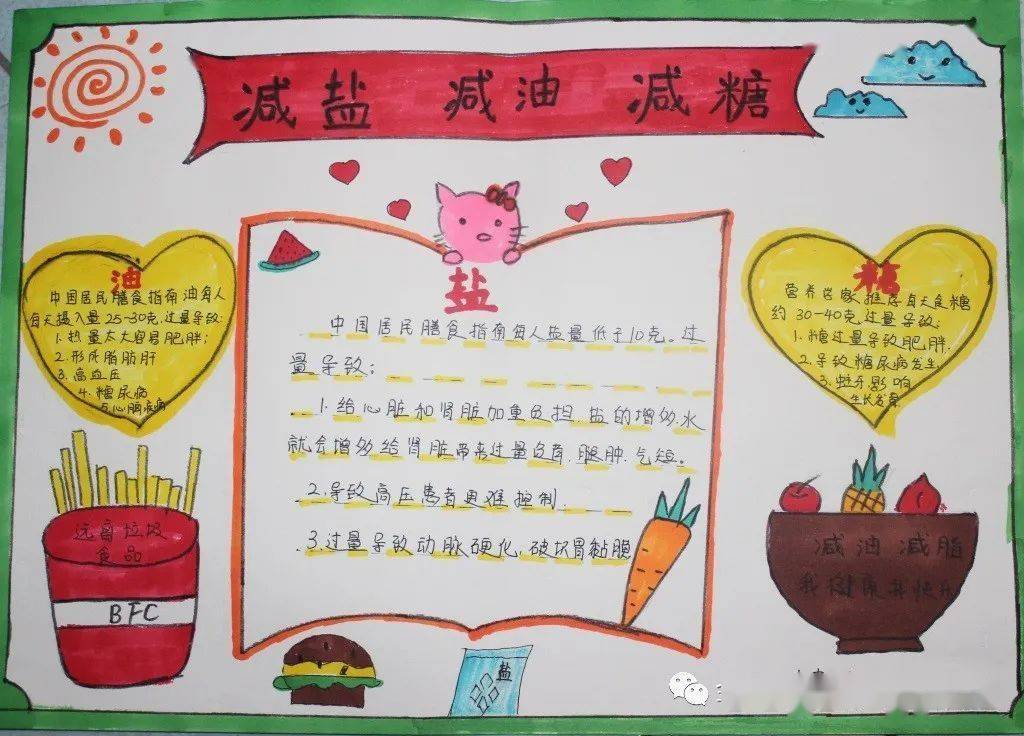 减盐 减油 减糖
油
中国居民膳食指南油每人
每天摄入量25-30克,过量导致:
1.热量太大容易肥胖;
2.形成脂肪肝
3.高血压
4.糖尿病
5.心脑疾病
盐
中国居民膳食指南每人盐量低于10克。过
量导致:
1.给心脏和肾脏加重负担.盐的增多,水
就会增多给肾脏带来过量负荷.腿肿.气短。
2.导致高压患者更难控制.
3.过量导致动脉硬化,破坏胃黏膜
糖
营养专家推荐每天食糖
约30-40克,过量导致:
1.糖过量导致肥胖.
2.导致糖尿病发生.
3.蛀牙影响
生长发育
远离垃圾
食品
BFC
减油 减脂
我健康并快乐
盐